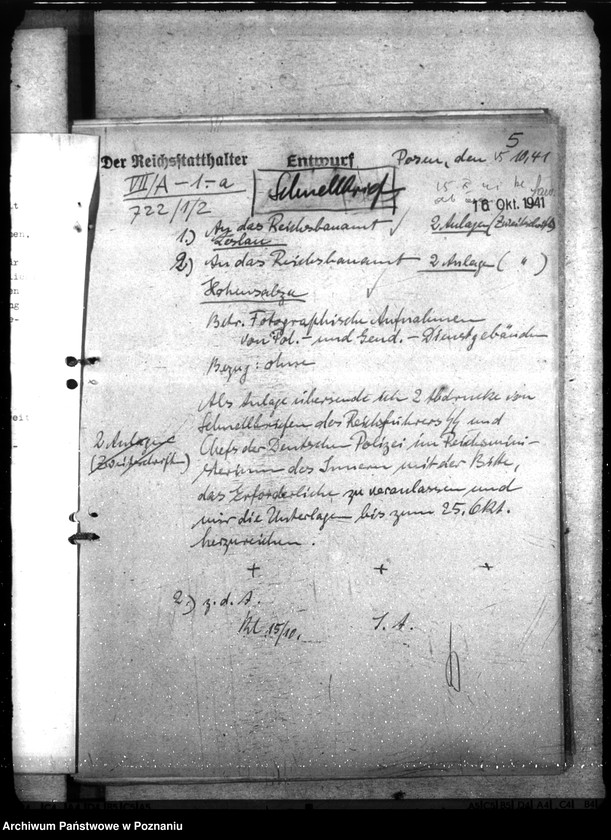 5
Der Reichsstatthalter Entwurf Posen, den 15 10.41
VII/A – 1. – a Schnellbrief
722/1/2
16 Okt. 1941
1.) An das Reichsbauamt 2 Anlagen (Zweitschrift)
Leslau
2.) An das Reichsbauamt 2 Anlagen ( " )
Hohensalza
Betr. Fotographische Aufnahmen
von Pol. – und Gend. – Dienstgebänden
Bezug: ohne
Als Anlage übersende ich 2 Abdrucke von
Schnellbriefen des Reichsführers SS und
2 Anlagen
(Zweitschrift)
Chefs der Deutschen Polizei im Reichsmini-
sterium des Innern mit der Bitte,
das Erforderliche zu veranlassen und
mir die Unterlagen bis zum 25. Okt.
herzureichen.
+ + +
2.) z. d. A.
15/10. I. A.
Archiwum Państwowe w Poznaniu